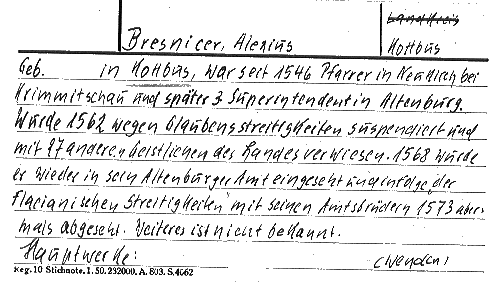 Landkreis
Bresnicer, Alexius
Kottbus
Geb. in Kottbus, war seit 1546 Pfarrer in Neukirch bei
Krimmitschau und später 3 Superintendent in Altenburg.
Wurde 1562 wegen Glaubensstreitigkeiten suspendiert und
mit 27 anderen Geistlichen des Landes verwiesen. 1568 wurde
er wieder in sein Altenburger Amt eingesetzt und infolge der
Flacianischen Streitigkeiten mit seinen Amtsbrüdern 1573 aber-
mals abgesetzt. Weiteres ist nicht bekannt.
Hauptwerke:
(Wenden)
Reg. 10 Stichnote. I. 50. 232000. A. 803. S. 4062